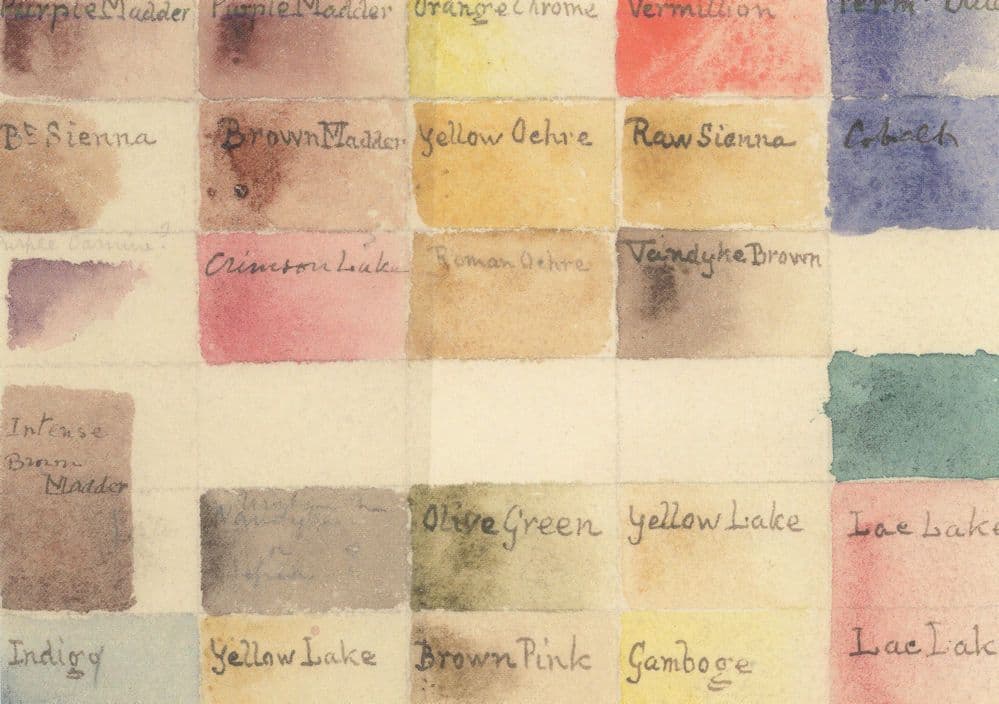 Purple Madder
Purple Madder
Orange Chrome
Vermillion
Perm^t
Bt Sienna
Brown Madder
Yellow Ochre
Raw Sienna
Cobalt
Purple Carmine?
Crimson Lake
Roman Ochre
Vandyke Brown
Intense
Brown
Madder
Olive Green
Yellow Lake
Lac Lake
Indigo
Yellow Lake
Brown Pink
Gamboge
Lac Lak